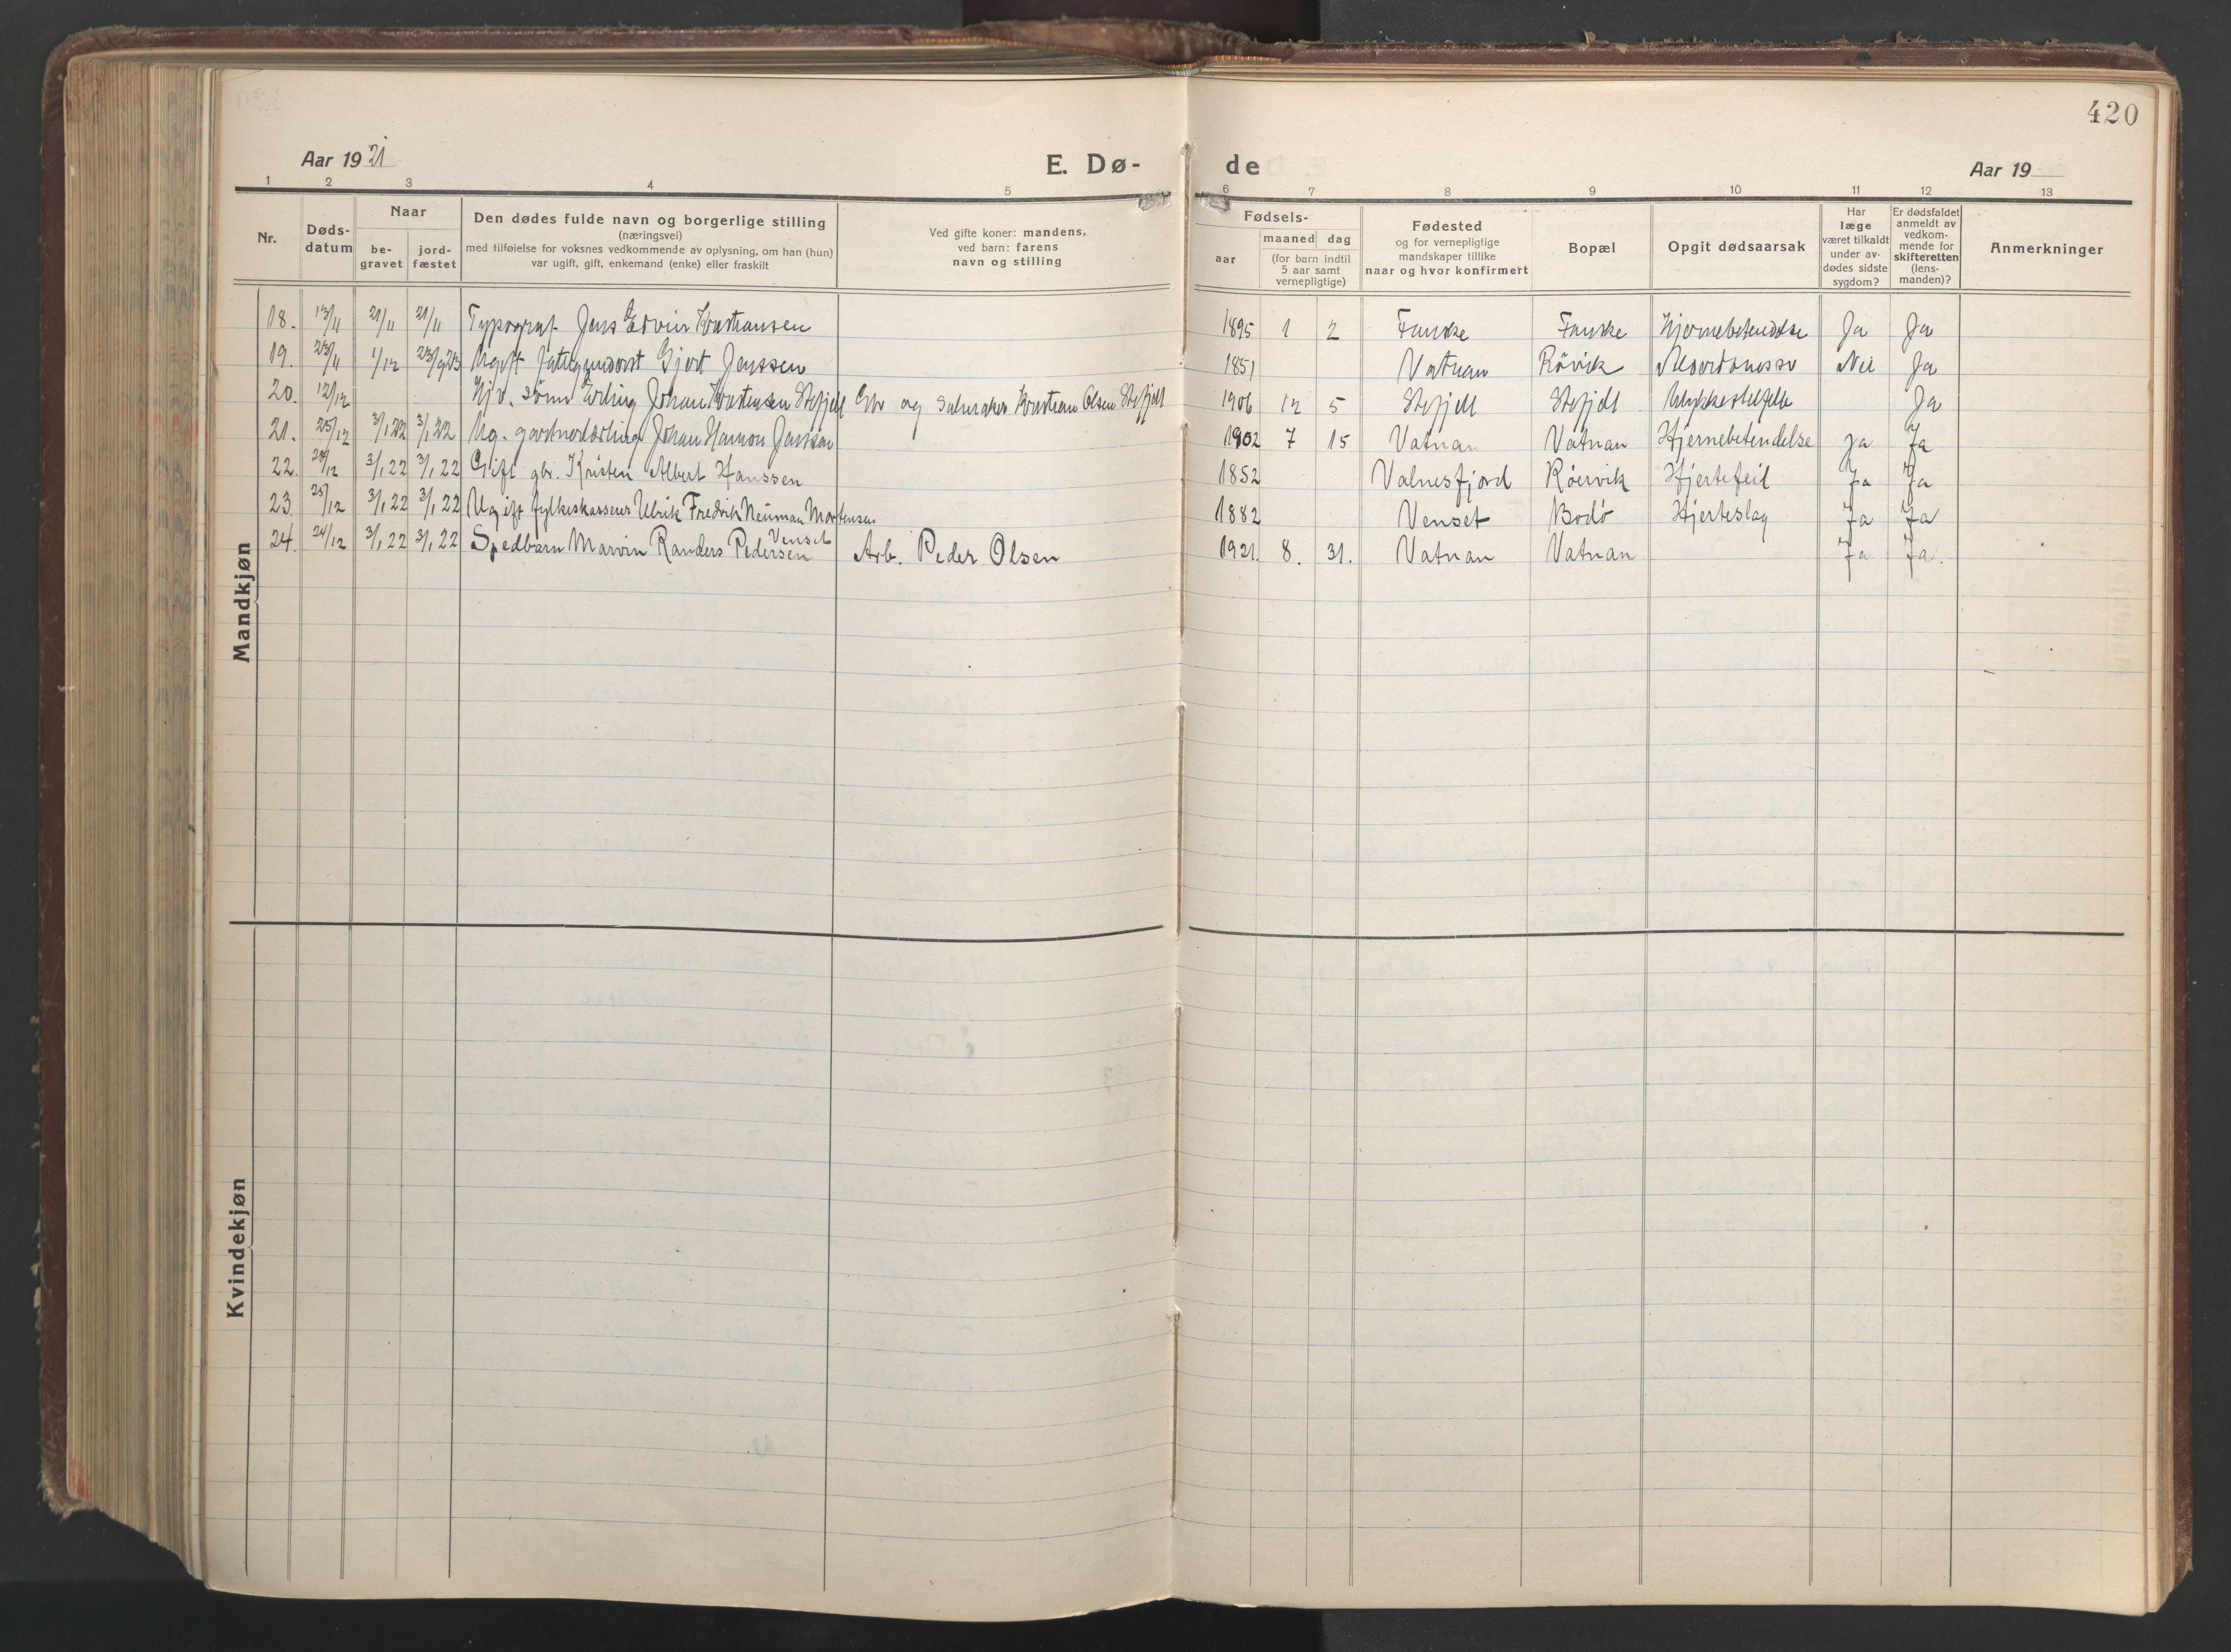 420
Aar 1921 E. Dø- de Aar 19
1 2 3 4 5 6 7 8 9 10 11 12 13
Nr.
Døds-
datum
Naar
be-
gravet
jord-
fæstet
Den dødes fulde navn og borgerlige stilling
(næringsvei)
med tilføielse for voksnes vedkommende av oplysning, om han (hun)
var ugift, gift, enkemand (enke) eller fraskilt
Ved gifte koner: mandens,
ved barn: farens
navn og stilling
Fødsels-
aar
maaned dag
(for barn indtil
5 aar samt
vernepligtige)
Fødested
og for vernepligtige
mandskaper tillike
naar og hvor konfirmert
Bopæl
Opgit dødsaarsak
Har
læge
været tilkaldt
under av-
dødes sidste
sygdom?
Er dødsfaldet
anmeldt av
vedkom-
mende for
skifteretten
(lens-
manden)?
Anmerkninger
Mandkjøn
18. 13/11 21/11 21/11 Typograf Jens Edvin Kristiansen 1895 1 2 Fauske Fauske Hjernebetendelse Ja Ja
19. 23/11 1/12 Ugift Gjert Janssen 1851 Vatnan Røvik Nei Ja
20. 12/12 Gjv. sønn Erling Johan Kristensen Stefjell Gbr og Kristian Olsen Stefjell 1906 12 5 Stefjell Stefjell Ulykkestilfelle Ja
21. 25/12 3/1 22 3/1 22 Ug. gartnerlærling Johan Hanson Janssen 1902 7 15 Vatnan Vatnan Hjernebetendelse Ja Ja
22. 3/1 22 3/1 22 Gift gbr. Kristen Albert Hanssen 1852 Valnesfjord Røervik Hjertefeil Ja Ja
23. 25/12 3/1 22 3/1 22 Ugift fylkeskasserer Ulrik Fredrik Neuman Mortensen Venset 1882 Venset Bodø Hjerteslag Ja Ja
24. 24/12 3/1 22 3/1 22 Spedbarn Marvin Randers Pedersen Arb. Peder Olsen 1921. 8. 31. Vatnan Vatnan Ja Ja.
Kvindekjøn